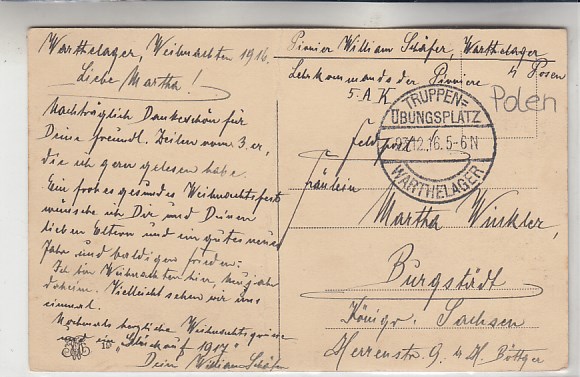 Warthelager, Weihnachten 1916.
Liebe Martha!
Nachträglich Dankeschön für
Deine freundl. Zeilen vom 3. er,
die ich gern gelesen habe.
Ein frohes gesundes Weihnachtsfest
wünsche ich Dir und Deinen
lieben Eltern und ein gutes neues
Jahr und baldigen Frieden.
Ich bin Weihnachten hier, Neujahr
daheim. Vielleicht sehen wir uns
einmal.
Nochmals herzliche Weihnachtsgrüsse
und ein „Glückauf 1917"
Dein William Schäfer
19
Pionier William Schäfer, Warthelager
Lehrkommando der Pioniere
5. A. K. Posen
Polen
TRUPPEN=
ÜBUNGSPLATZ
27.12.16.5-6N
WARTHELAGER
Feldpost
Fräulein
Martha Winkler,
Burgstädt
Königr. Sachsen
Herrenstr. 9. b. H. Böttger